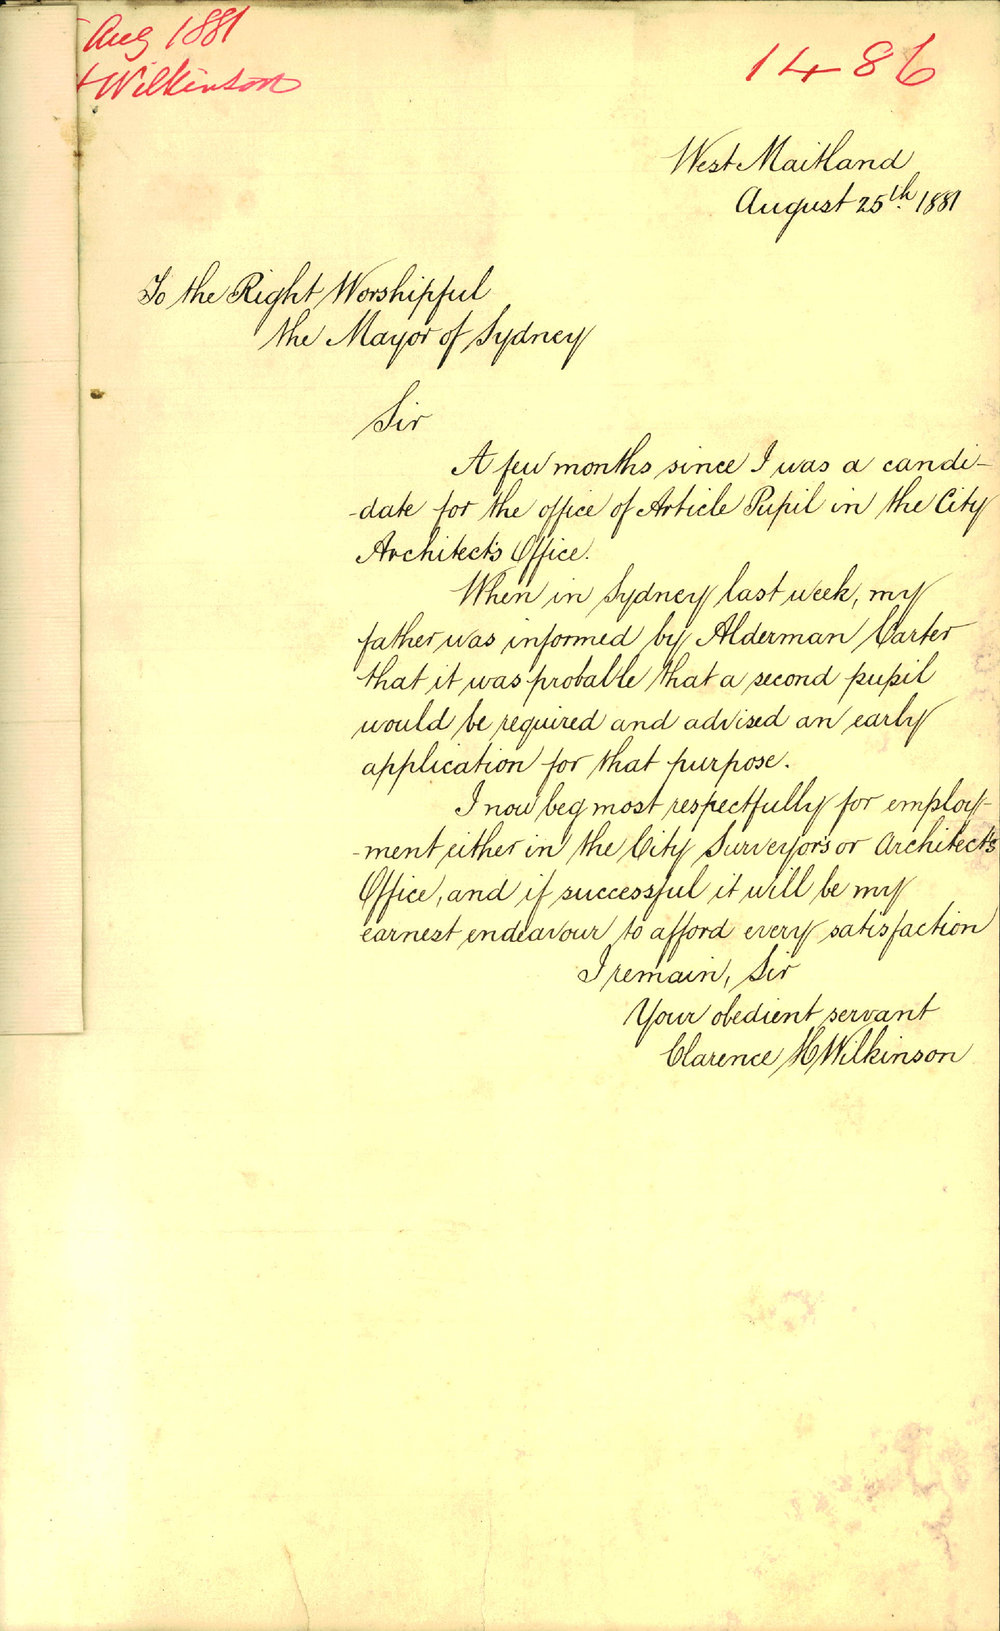 Aug 1881
Wilkinson
1486
West Maitland
August 25th. 1881
To the Right Worshipful
the Mayor of Sydney
Sir
A few months since I was a candi-
-date for the office of Article Pupil in the City
Architect's Office.
When in Sydney last week, my
father was informed by Alderman Carter
that it was probable that a second pupil
would be required and advised an early
application for that purpose.
I now beg most respectfully for employ-
-ment either in the City Surveyor's or Architect's
Office, and if successful it will be my
earnest endeavour to afford every satisfaction
I remain, Sir
Your obedient servant
Clarence H Wilkinson